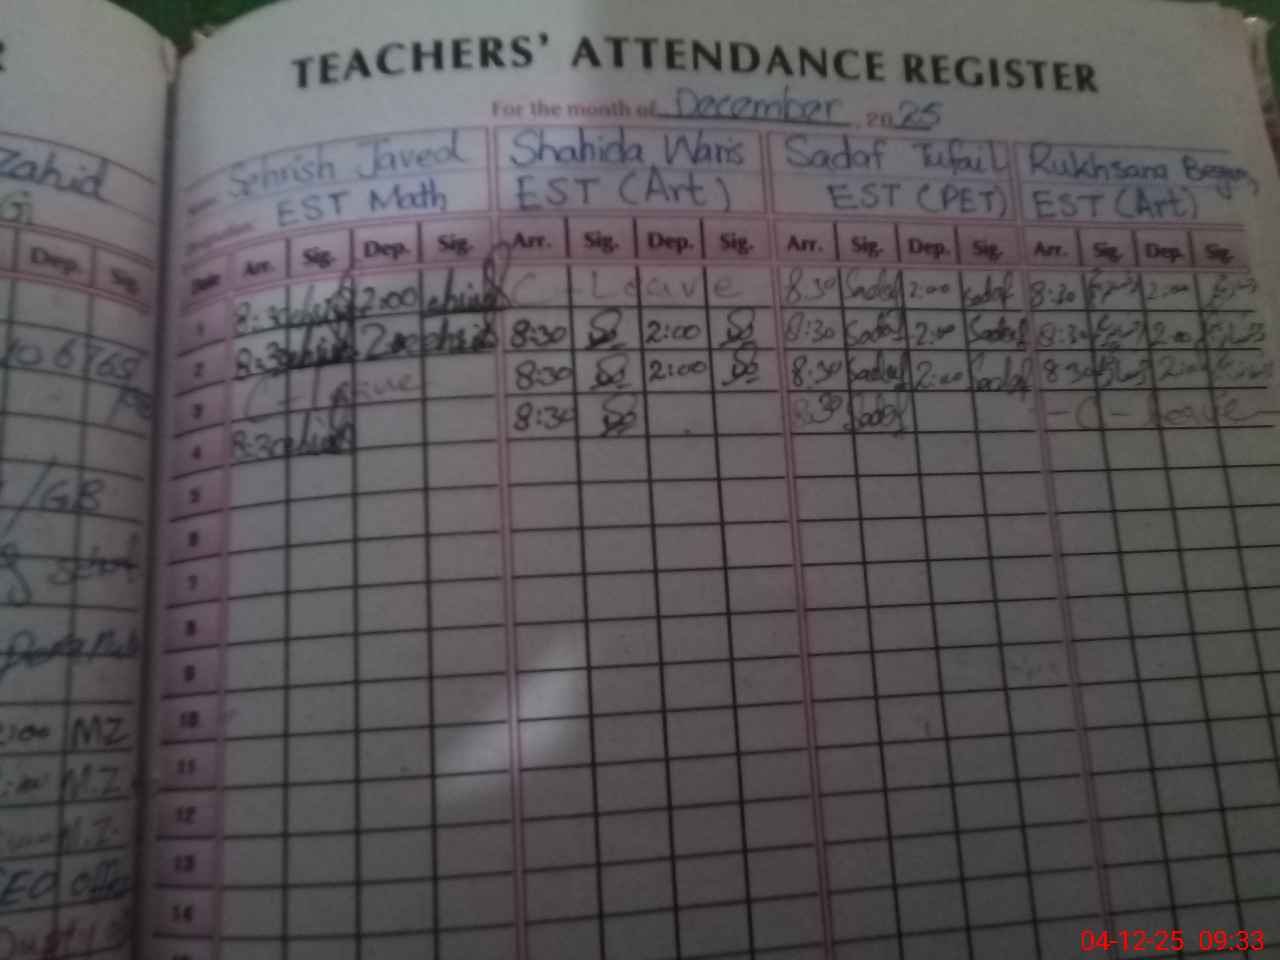 TEACHERS' ATTENDANCE REGISTER
For the month of December 2025
Zahid
Sehrish Javed Shahida Waris Sadaf Tufail Rukhsana Begum
EST Math EST (Art) EST (PET) EST (Art)
Dep. Sig.
Date Arr. Sig. Dep. Sig. Arr. Sig. Dep. Sig. Arr. Sig. Dep. Sig. Arr. Sig. Dep. Sig.
1 8:30 2:00 C-Leave 8:30 Sadaf 2:00 Sadaf 8:30 2:00
2 8:30 2:00 8:30 2:00 8:30 Sadaf 2:00 Sadaf 8:30 2:00
3 C-Leave 8:30 2:00 8:30 Sadaf 2:00 Sadaf 8:30 2:00
4 8:30 8:30 8:30 Sadaf -C-Leave-
5
/GB
6
7
8
9
10
MZ
11
M.Z
12
M.Z.
13
CEO office
14
04-12-25 09:33